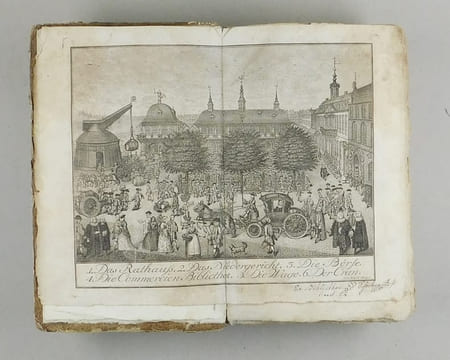 1. Das Rathauß. 2. Das Niedergericht. 3. Die Börse.
4. Die Commercien Bibliothec. 5. Die Wage. 6. Der Cran.